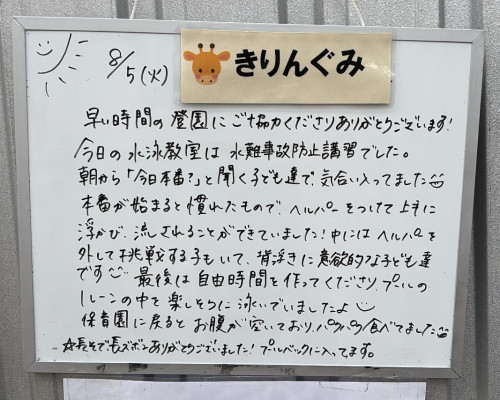 8/5(火)
きりんぐみ
早い時間の登園にご協力くださりありがとうございます!
今日の水泳教室は水難事故防止講習でした。
朝から「今日本番?」と聞く子ども達で、気合い入ってました
本番が始まると慣れたもので、ヘルパーをつけて上手に
浮かび、流されることができていました!中にはヘルパーを
外して挑戦する子もいて、背浮きに意欲的な子ども達
です 最後は自由時間を作ってくださり、プールの
1レーンの中を楽しそうに泳いでいましたよ
保育園に戻るとお腹が空いており、パクパク食べてました
☆長そで、長ズボンありがとうございました!プールバックに入ってます。